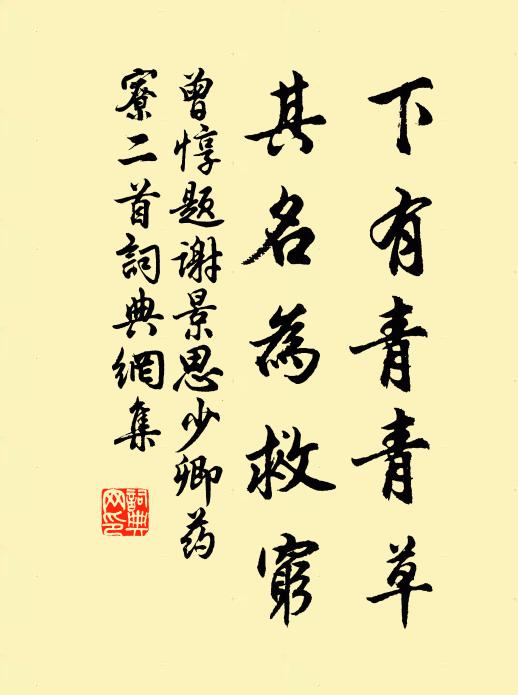 下有青青草
其名為救窮
曾惇题谢景思少卿药
寮二首詞典網集
詞典
网印